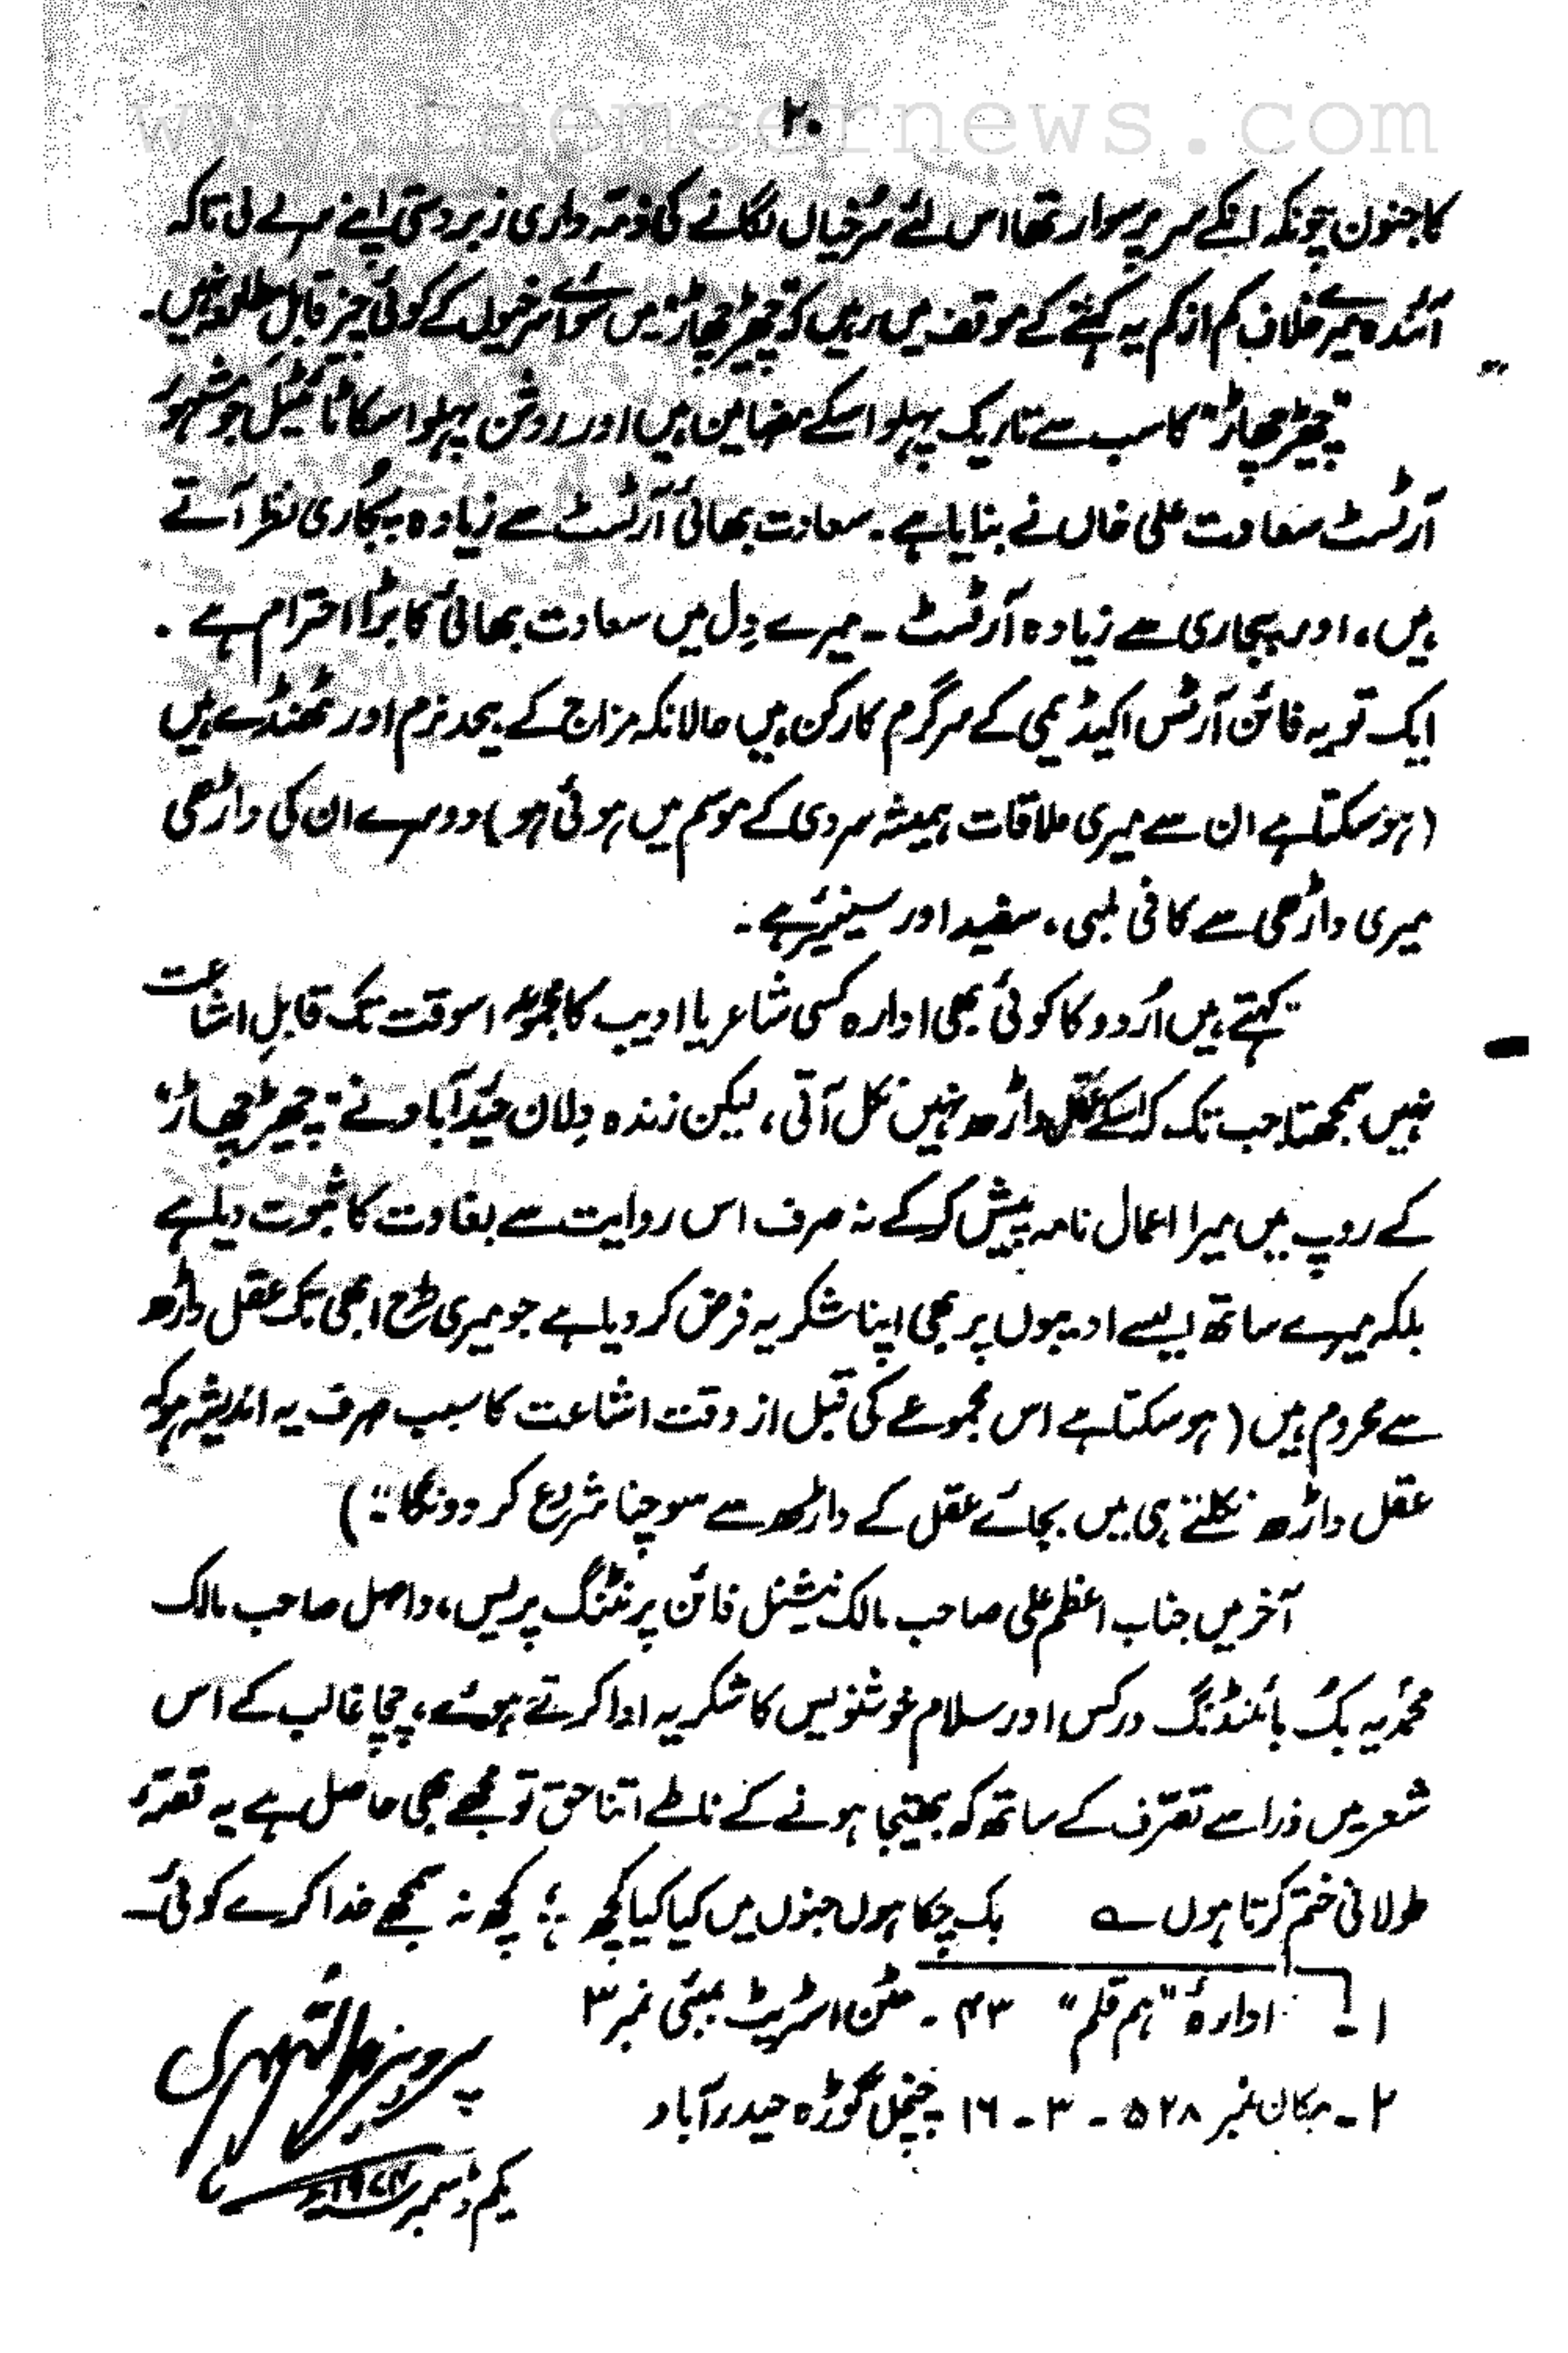 www.taemeernews.com
۲۰
کا جنون چونکہ انکے سر پر سوار تھا اس لئے سُرخیاں لگانے کی ذمّہ داری زبردستی اپنے سر لے لی تاکہ
آئندہ میرے خلاف کم از کم یہ کہنے کے موقف میں رہیں کہ "چھیڑ چھاڑ" میں سوائے سرخیوں کے کوئی چیز قابلِ مطلعہ نہیں۔
"چھیڑ چھاڑ" کا سب سے تاریک پہلو اسکے مضامین ہیں اور روشن پہلو اسکا ٹائیٹل جو مشہور
آرٹسٹ سعادت علی خاں نے بنایا ہے۔ سعادت بھائی آرٹسٹ سے زیادہ پُجاری نظر آتے
ہیں، اور پجاری سے زیادہ آرٹسٹ ۔ میرے دِل میں سعادت بھائی کا بڑا احترام ہے ۔
ایک تو یہ فائن آرٹس اکیڈیمی کے سرگرم کارکن ہیں حالانکہ مزاج کے بیحد نرم اور ٹھنڈے ہیں
(ہو سکتا ہے ان سے میری ملاقات ہمیشہ سردی کے موسم میں ہوئی ہو) دوسرے ان کی داڑھی
میری داڑھی سے کافی لمبی، سفید اور سینیئر ہے ۔
کہتے ہیں اُردو کا کوئی بھی ادارہ کسی شاعر یا ادیب کا مجموعہ اسوقت تک قابلِ اشاعت
نہیں سمجھتا جب تک کہ اسکے عقل داڑھ نہیں نکل آتی، لیکن زندہ دِلان حیدرآباد نے "چھیڑ چھاڑ"
کے روپ میں میرا اعمال نامہ پیش کر کے نہ صرف اس روایت سے بغاوت کا ثبوت دیا ہے
بلکہ میرے ساتھ ایسے ادیبوں پر بھی اپنا شکریہ فرض کر دیا ہے جو میری طرح ابھی تک عقل داڑھ
سے محروم ہیں (ہو سکتا ہے اس مجموعے کی قبل از وقت اشاعت کا سبب صرف یہ اندیشہ ہو کہ
عقل داڑھ نکلتے ہی میں بجائے عقل کے داڑھ سے سوچنا شروع کر دونگا")
آخر میں جناب اعظم علی صاحب مالک نیشنل فائن پرنٹنگ پریس، واصل صاحب مالک
محمدیہ بک بائنڈنگ ورکس اور سلام خوشنویس کا شکریہ ادا کرتے ہوئے، چچا غالب کے اس
شعر میں ذرا سے تصرّف کے ساتھ کہ بھتیجا ہونے کے ناطے اتنا حق تو مجھے بھی حاصل ہے یہ قصّہ
طولانی ختم کرتا ہوں ؎ بک چکا ہوں جنوں میں کیا کیا کچھ ؛ کچھ نہ سمجھے خدا کرے کوئی
۱ - ادارۂ "ہم قلم" ۴۳ - مٹن اسٹریٹ بمبئی نمبر ۳
۲ - مکان نمبر ۵۲۸ - ۳ - ۱۶ چنچل گوڑہ حیدرآباد
پرویز یداللہ مہدی
یکم دسمبر